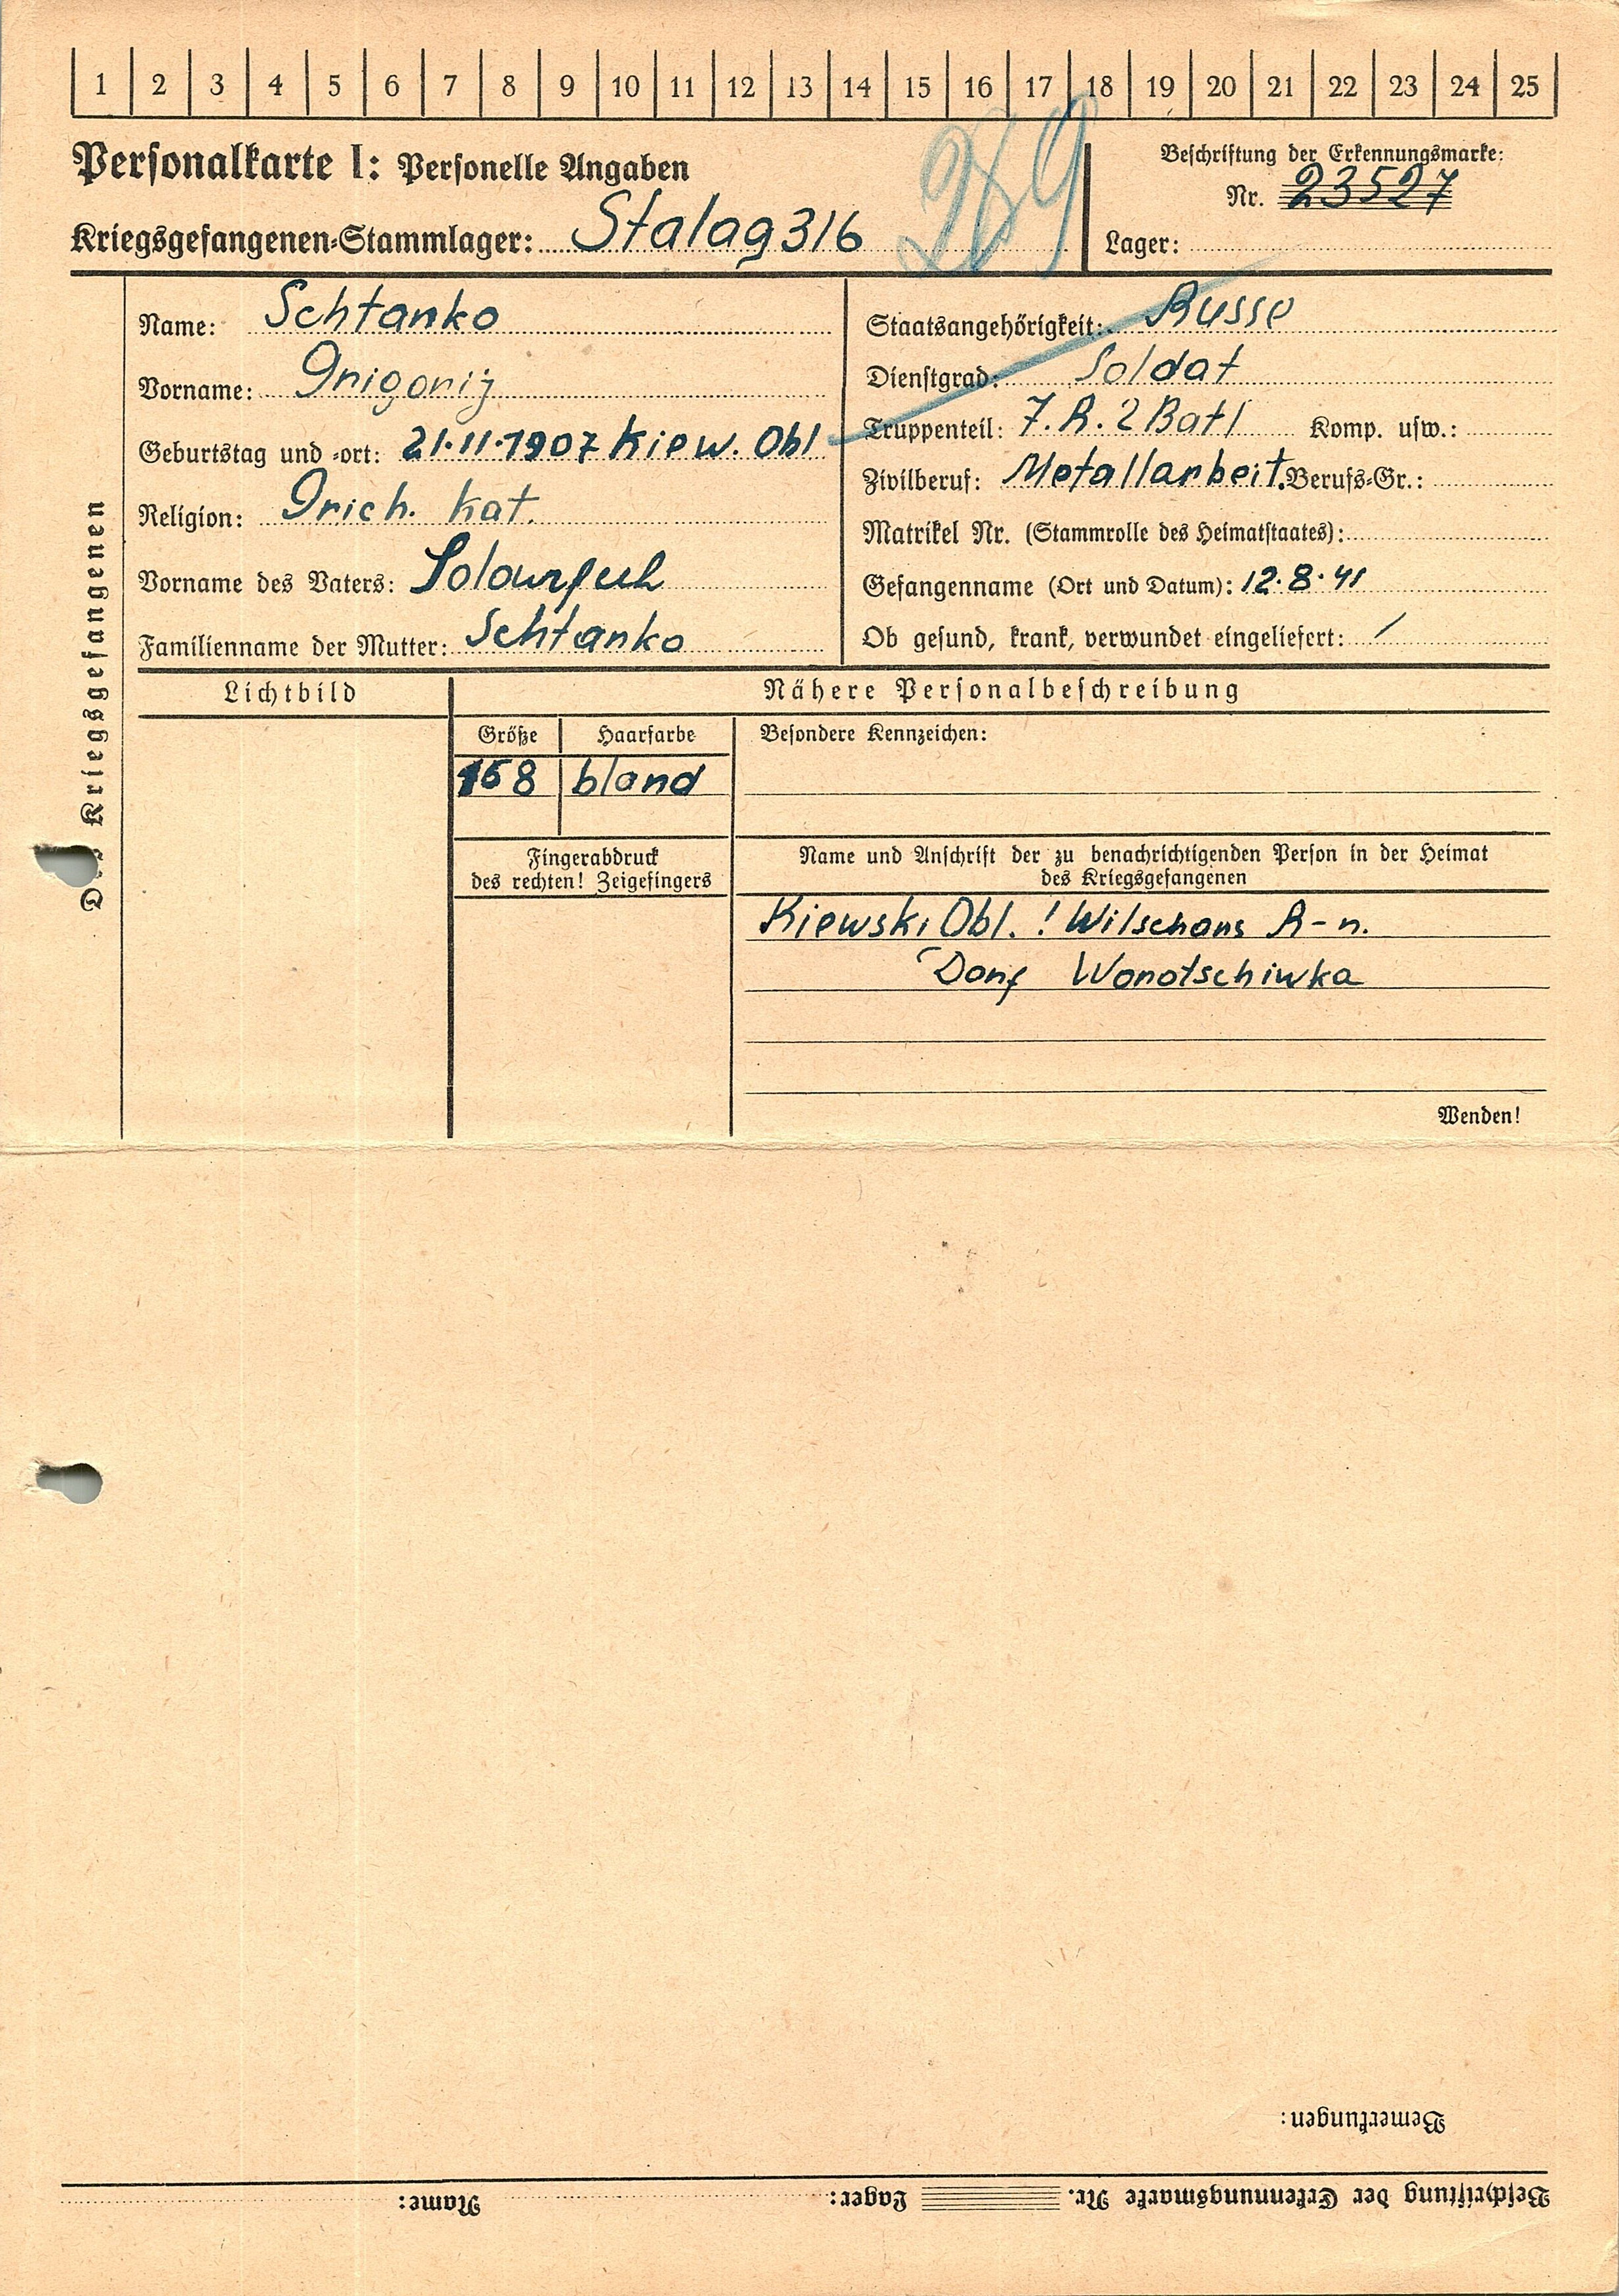 1 2 3 4 5 6 7 8 9 10 11 12 13 14 15 16 17 18 19 20 21 22 23 24 25
Personalkarte I: Personelle Angaben
Kriegsgefangenen-Stammlager: Stalag 316
Beschriftung der Erkennungsmarke:
Nr. 23527
Lager:
Des Kriegsgefangenen
Name: Schtanko
Vorname: Grigorij
Geburtstag und -ort: 21.11.1907 Kiew. Obl
Religion: Grich. Kat.
Vorname des Vaters:
Familienname der Mutter: Schtanko
Staatsangehörigkeit: Russe
Dienstgrad: Soldat
Truppenteil: 7. R. 2 Batl Komp. usw.:
Zivilberuf: Metallarbeit. Berufs-Gr.:
Matrikel Nr. (Stammrolle des Heimatstaates):
Gefangenname (Ort und Datum): 12.8.41
Ob gesund, krank, verwundet eingeliefert: /
Lichtbild
Nähere Personalbeschreibung
Größe Haarfarbe
168 bland
Besondere Kennzeichen:
Fingerabdruck
des rechten! Zeigefingers
Name und Anschrift der zu benachrichtigenden Person in der Heimat
des Kriegsgefangenen
Kiewski Obl. ! Wilschans R-n.
Dorf Worotschiwka
Wenden!
Bemerkungen:
Beschriftung der Erkennungsmarke Nr. Lager: Name: